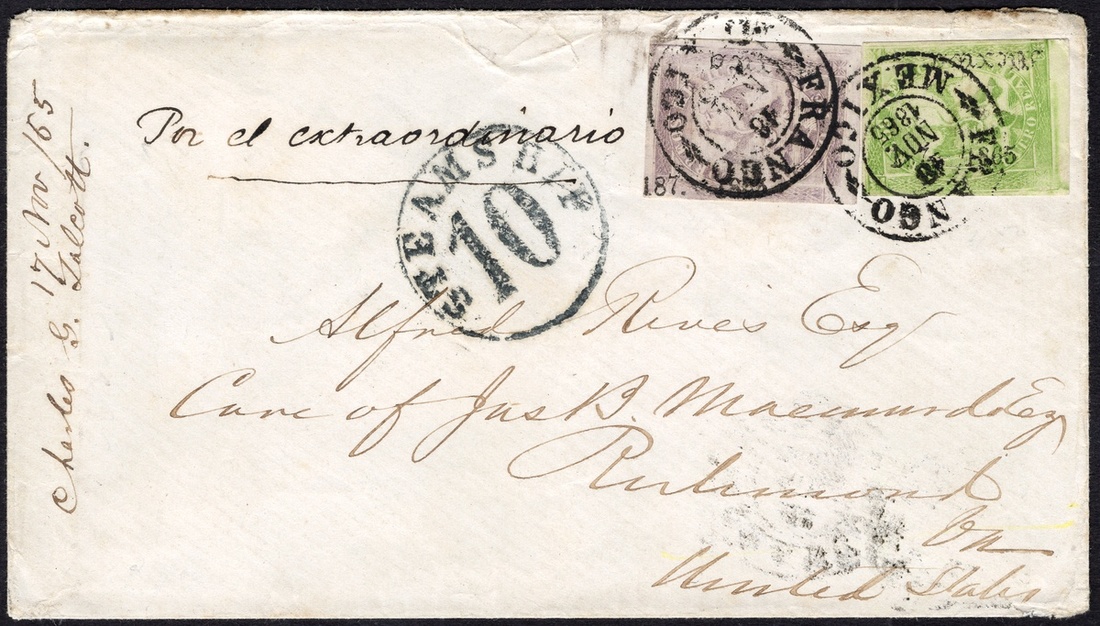 Por el extraordinario
STEAMSHIP
10
FRANCO
187.
FRANCO
MEXICO
NOV
1865
Alfred Rives Esq
Care of Jas B. Macmurdo Esq
Richmond
Va
United States
Charles G. Talcott.
17 Nov/65